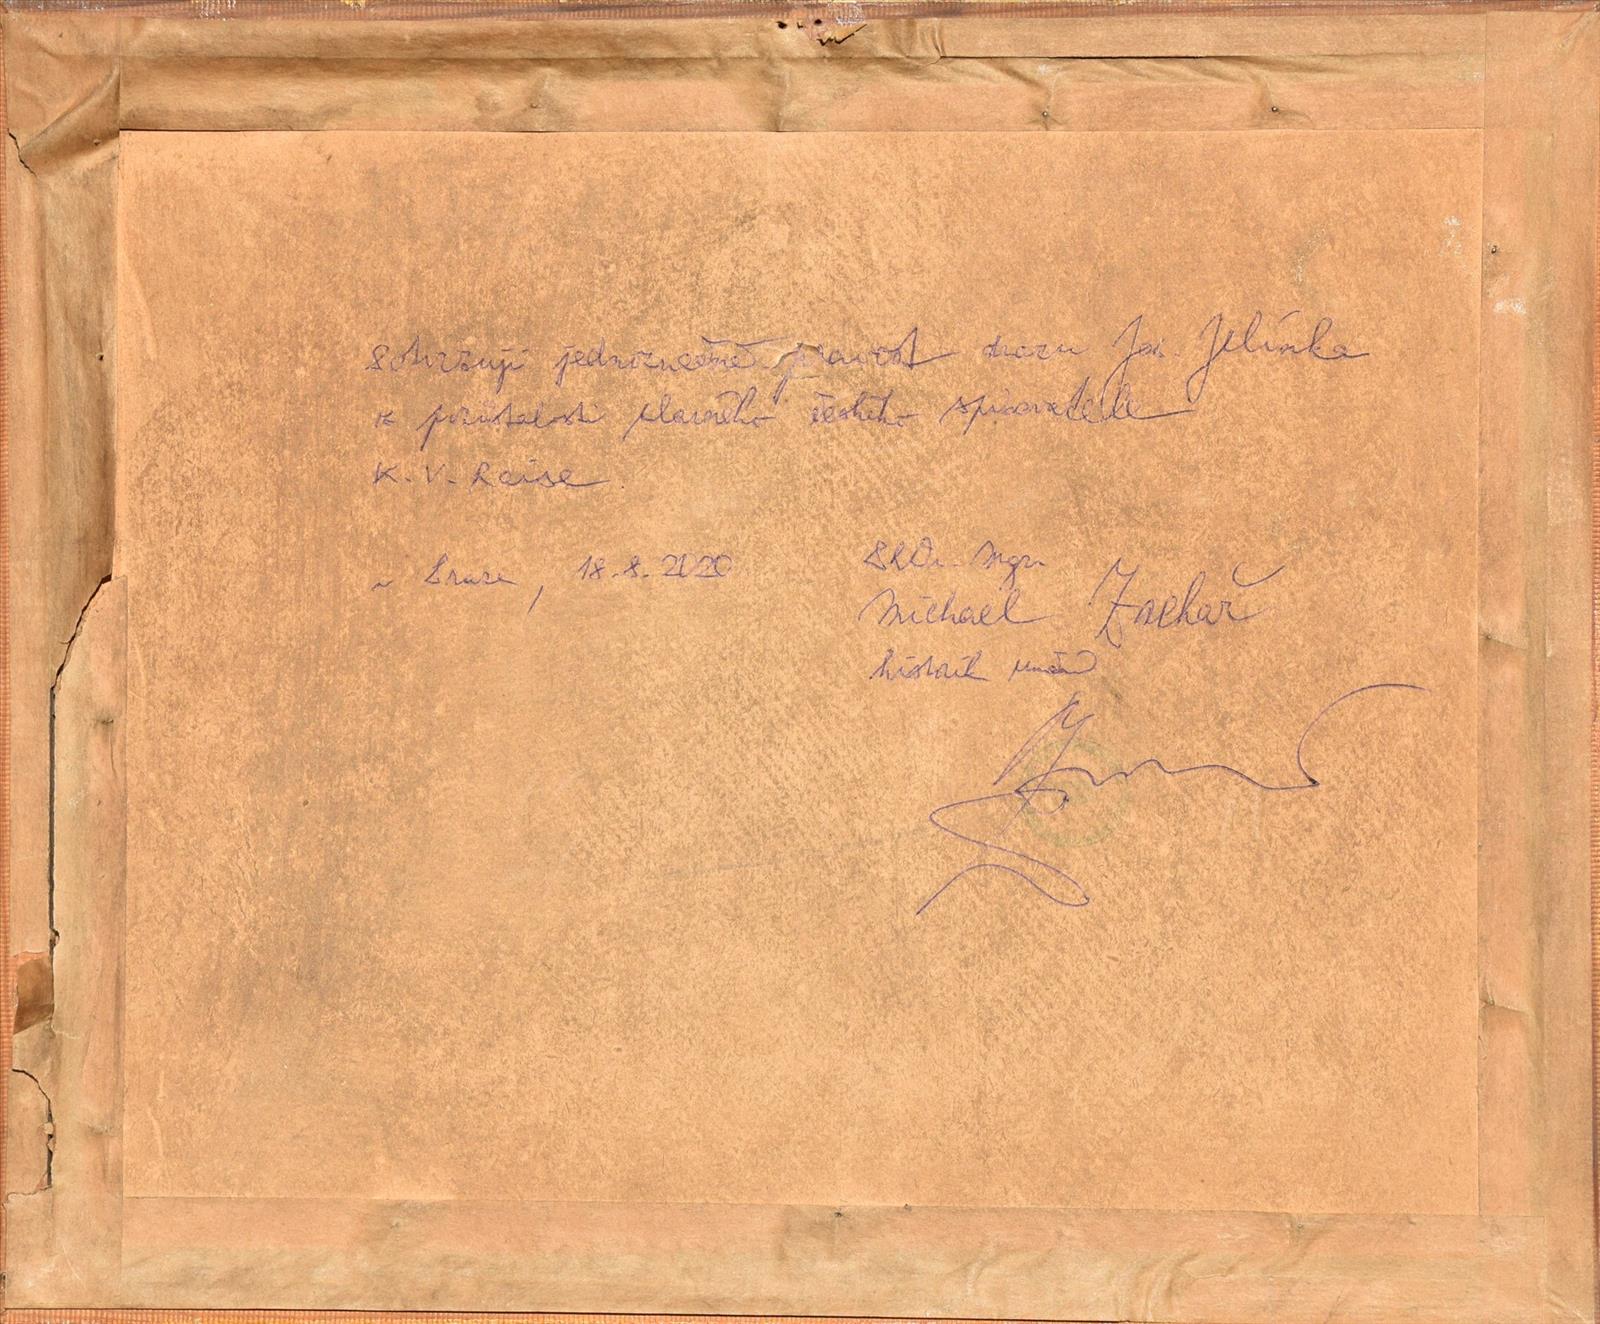 Potvrzuji jednoznačně pravost obrazu Jos. Jelínka
z pozůstalosti slavného českého spisovatele
K. V. Raise
v Praze, 18. 8. 2020
PhDr. Mgr.
Michael Zachař
historik umění